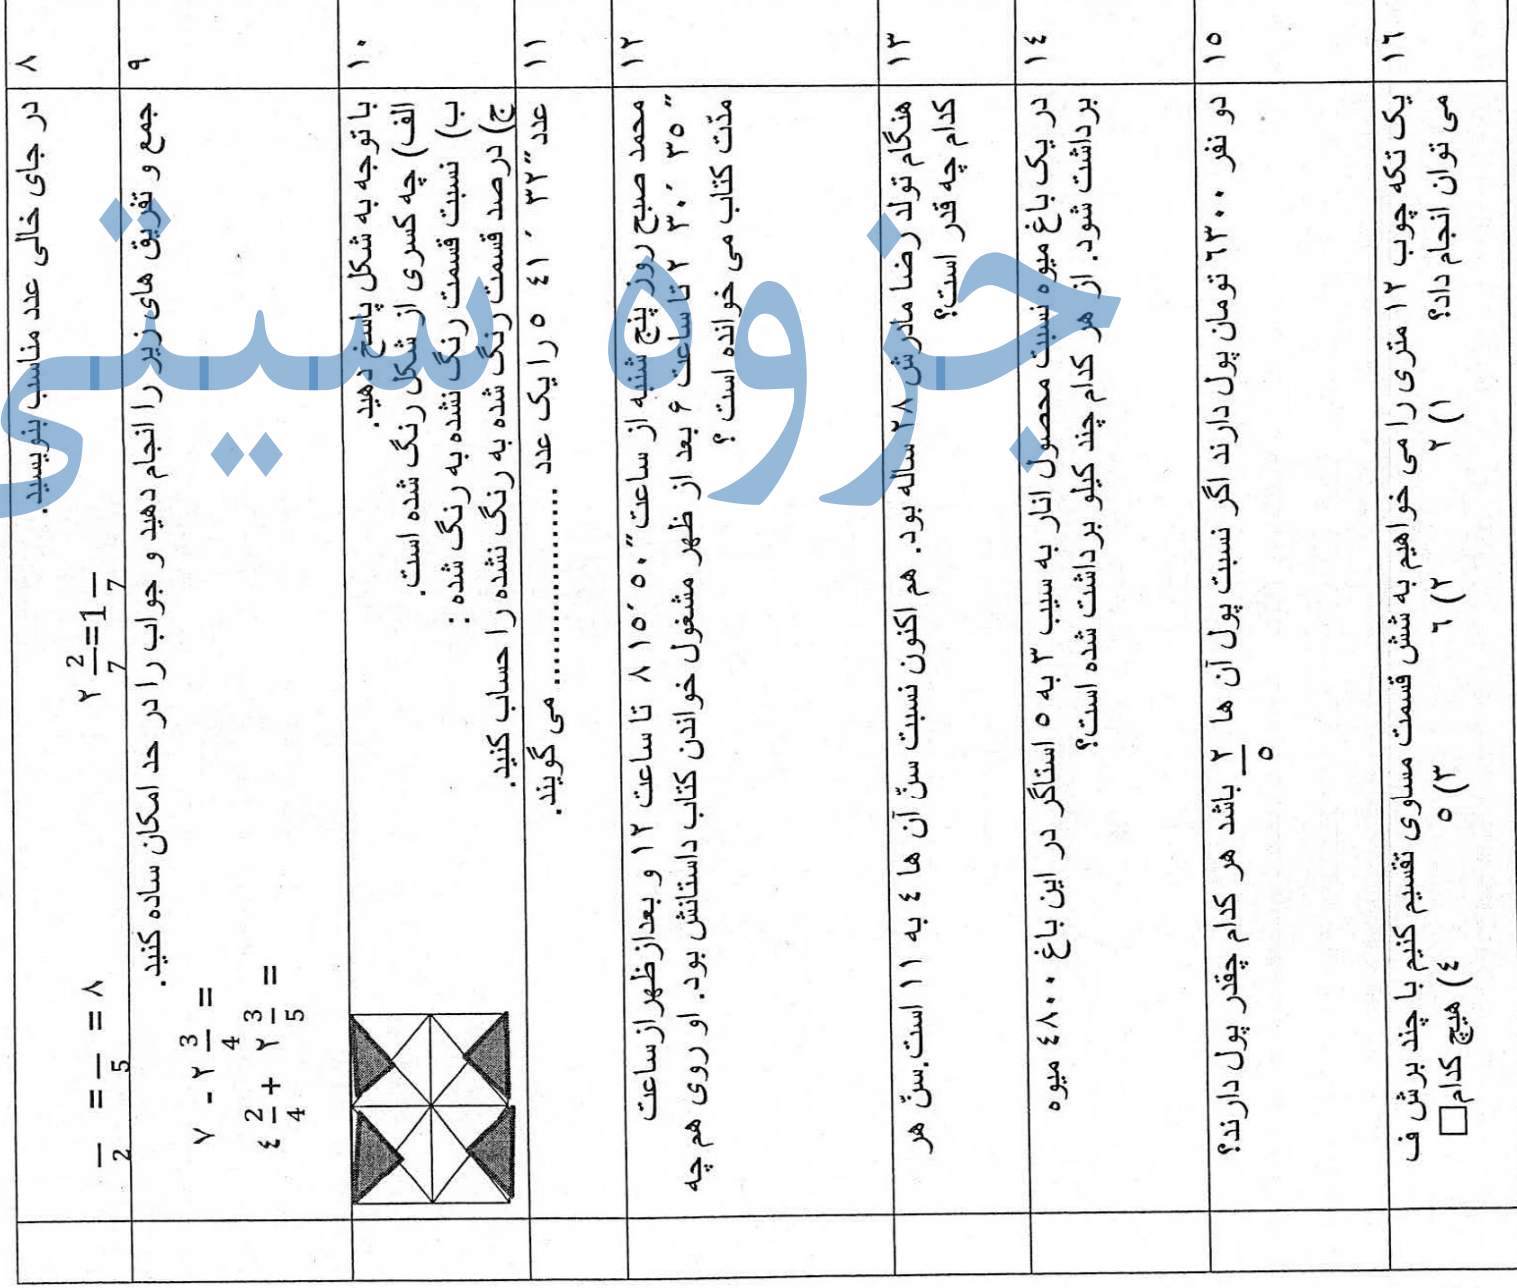 ۸ در جای خالی عدد مناسب بنویسید.
۲ 2/7 = 1 —/7
—/2 = —/5 = ۸
۹ جمع و تفریق های زیر را انجام دهید و جواب را در حد امکان ساده کنید.
۷ - ۲ 3/4 =
٤ 2/4 + ۲ 3/5 =
۱۰ با توجه به شکل پاسخ دهید.
الف) چه کسری از شکل رنگ شده است.
ب) نسبت قسمت رنگ نشده به رنگ شده :
ج) درصد قسمت رنگ شده به رنگ نشده را حساب کنید.
۱۱ عدد ″۳۲ ′٤۱ ۵ را یک عدد .................... می گویند.
۱۲ محمد صبح روز پنج شنبه از ساعت ″۵۰ ′۱۵ ۸ تا ساعت ۱۲ و بعداز ظهر از ساعت
″۳۵ ′۳۰ ۲ تا ساعت ۶ بعد از ظهر مشغول خواندن کتاب داستانش بود. او روی هم چه
مدّت کتاب می خوانده است ؟
۱۳ هنگام تولد رضا مادرش ۲۸ ساله بود. هم اکنون نسبت سنّ آن ها ٤ به ۱۱ است.سنّ هر
کدام چه قدر است؟
۱٤ در یک باغ میوه نسبت محصول انار به سیب ۳ به ۵ استاگر در این باغ ٤۸۰۰ میوه
برداشت شود. از هر کدام چند کیلو برداشت شده است؟
۱۵ دو نفر ٦۳۰۰ تومان پول دارند اگر نسبت پول آن ها ۲/۵ باشد هر کدام چقدر پول دارند؟
۱٦ یک تکه چوب ۱۲ متری را می خواهیم به شش قسمت مساوی تقسیم کنیم با چند برش ف
می توان انجام داد؟ ۱) ۲ ۲) ٦ ۳) ۵ ٤) هیچ کدام□
جزوه سیتی